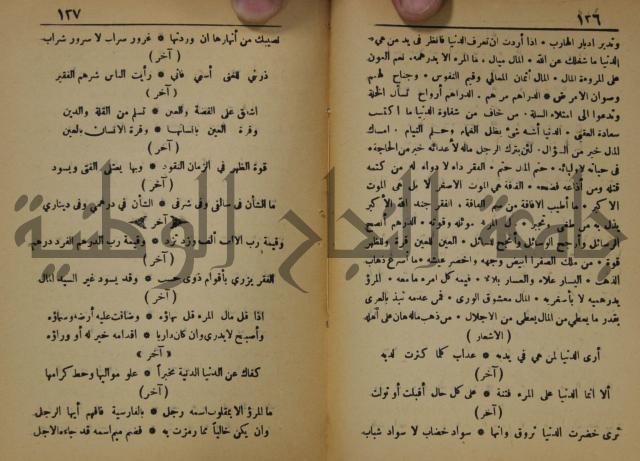 ١٣٦
وتدبر ادبار الهارب • اذا أردت ان تعرف الدنيا فانظر فى يد من هى •
الدنيا ما شغلك عن الله • المال ميال • ما المرء الا بدرهمه • نعم العون
على المروءة المال • المال أثمان المعالي وقيم النفوس • وجناح
وصوان الاعراض • الدراهم مرهم • الدراهم أرواح
وتدعوا الى امتلاء السلة • من خاف من شقاوة الدنيا ما اكتسب
سعادة العقبى • الدنيا أشبه شئ بظل الغمام وحلم النيام •
المال خير من السؤال • لئن يترك الرجل ماله لأعدائه خير من الحاجة
فى حياته لاوليائه • الفقر داء لا دواء له من كتمه
قتله ومن أذاعه فضحه • الفاقة هى الموت الاصفر لا بل هى الموت
الاكبر • ما أطيب الافاقة من غم الفاقة • الفقر جند الله الأكبر
يذل به من طغى وتجبر • مال المرء موئله وقوته • الدرهم أنجح
الرسائل وأرجح الوسائل وأنجح المسائل • العين للعين قرة وللظهر
قوة • من ملك الصفر ابيض وجهه واخضر عيشه • ما أسرع ذهاب
الذهب • اليسار علاء والعسار بلاء • قيمة كل امرء ما معه • المرؤ
بدرهميه لا بأصغريه • المال معشوق الورى • فمن عدمه نبذ بالعرى
بقدر ما يعطي من المال يعطى من الاجلال • من ذهب ماله هان على أهله
( الاشعار )
أرى الدنيا لمن هي في يديه • عذاب كلما كثرت لديه
( آخر )
ألا انما الدنيا على المرء فتنة • على كل حال أقبلت أو تولت
( آخر )
ترى خضرت الدنيا تروق وانها • سواد خضاب لا سواد شباب
١٢٧
نصيبك من أنهارها ان وردتها • غرور سراب لا سرور شراب
( آخر )
ذرني للغنى أسعى فانى • رأيت الناس شرهم الفقير
( آخر )
اشفق على الفضة والعين • تسلم من القلة والدين
وقوة العين بانسانها • وقوة الانسان بالعين
( آخر )
قوة الظهر في الزمان النقود • وبها يعتلى الفتى ويسود
( آخر )
ما الشأن في سالفى وفى شرفى • الشأن في درهمى وفى دينارى
آخر
وقيمة رب الالف ألف وزد تزد • وقيمة رب الدرهم الفرد درهم
( آخر )
الفقر يزري بأقوام ذوى حسب • وقد يسود غير السيد المال
( آخر )
اذا قل مال المرء قل بهاؤه • وضاقت عليه أرضه وسماؤه
وأصبح لا يدرى وان كان داريا • اقدامه خير له أو وراؤه
« آخر »
كفاك عن الدنيا الدنية مخبراً • علو مواليها وحط كرامها
( آخر )
ما المرؤ الا بمقلوب اسمه رجل • بالفارسية فافهم أيها الرجل
وان يكن خالياً مما رمزت به • فضم ميم اسمه قد جاءه الاجل
جامعة النجاح الوطنية